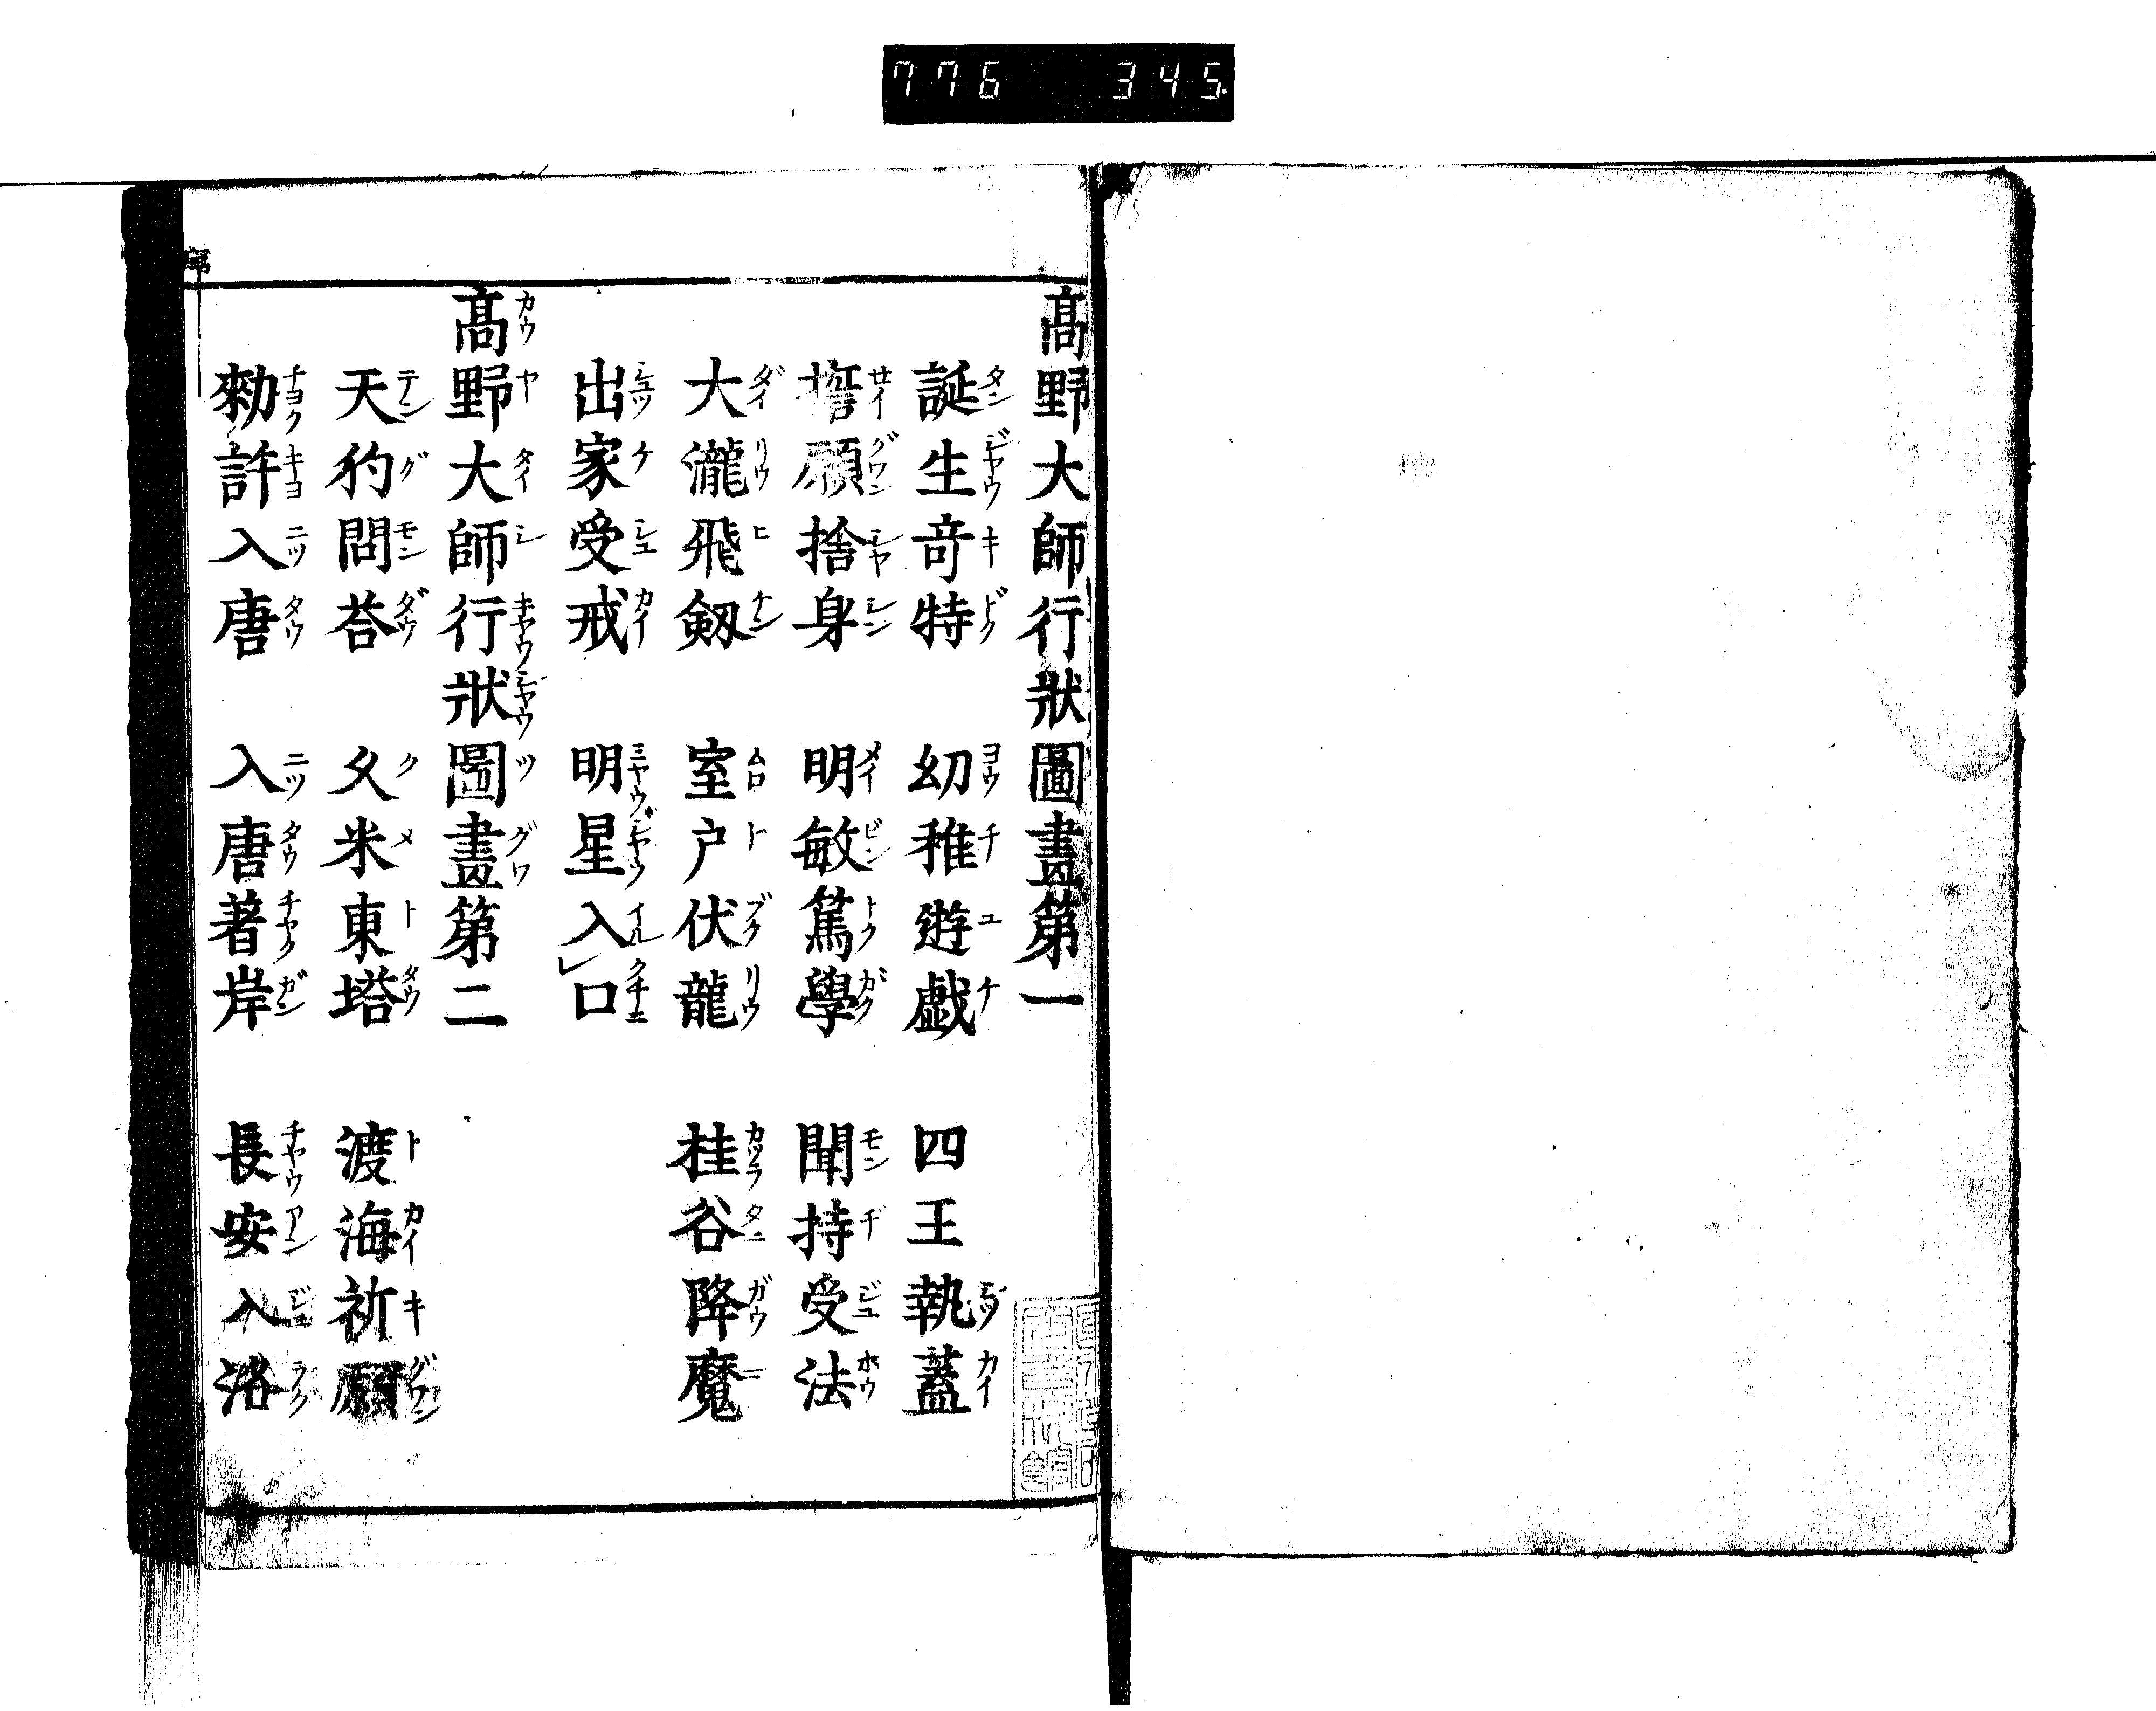 776 345
高野大師行状圖畫第一
誕生竒特 幼稚遊戯 四王執蓋
誓願捨身 明敏篤學 聞持受法
大瀧飛剱 室戸伏龍 桂谷降魔
出家受戒 明星入口
高野大師行状圖畫第二
天狗問荅 久米東塔 渡海祈願
勅許入唐 入唐著岸 長安入洛